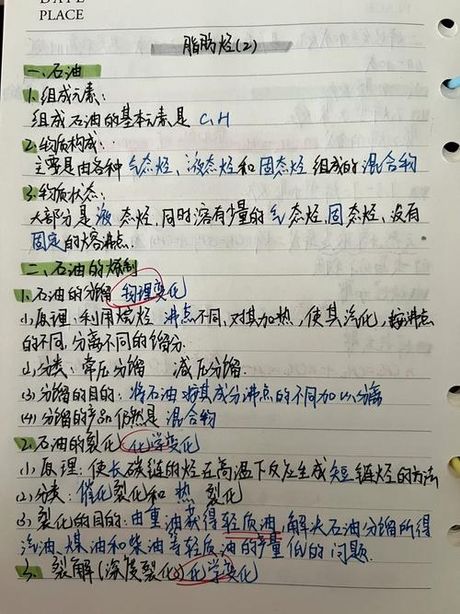 DATE
PLACE
脂肪烃(2)
一、石油
1.组成元素：
组成石油的基本元素是 C、H
2.物质构成：
主要是由各种气态烃、液态烃和固态烃组成的混合物
3.物质状态：
大部分是液态烃，同时溶有少量的气态烃、固态烃，没有
固定的熔沸点.
二、石油的炼制
1.石油的分馏 物理变化
(1)原理：利用烷烃 沸点不同，对其加热，使其汽化，按沸点
的不同，分离不同的馏分.
(2)分类：常压分馏 减压分馏.
(3)分馏的目的：将石油按其成分沸点的不同加以分离
(4)分馏的产品仍然是 混合物
2.石油的裂化 化学变化
(1)原理：使长碳链的烃在高温下反应生成短链烃的方法
(2)分类：催化裂化和 热 裂化
(3)裂化的目的：由重油获得轻质油，解决石油分馏所得
汽油、煤油和柴油等轻质油的产量低的问题.
3. 裂解(深度裂化)化学变化